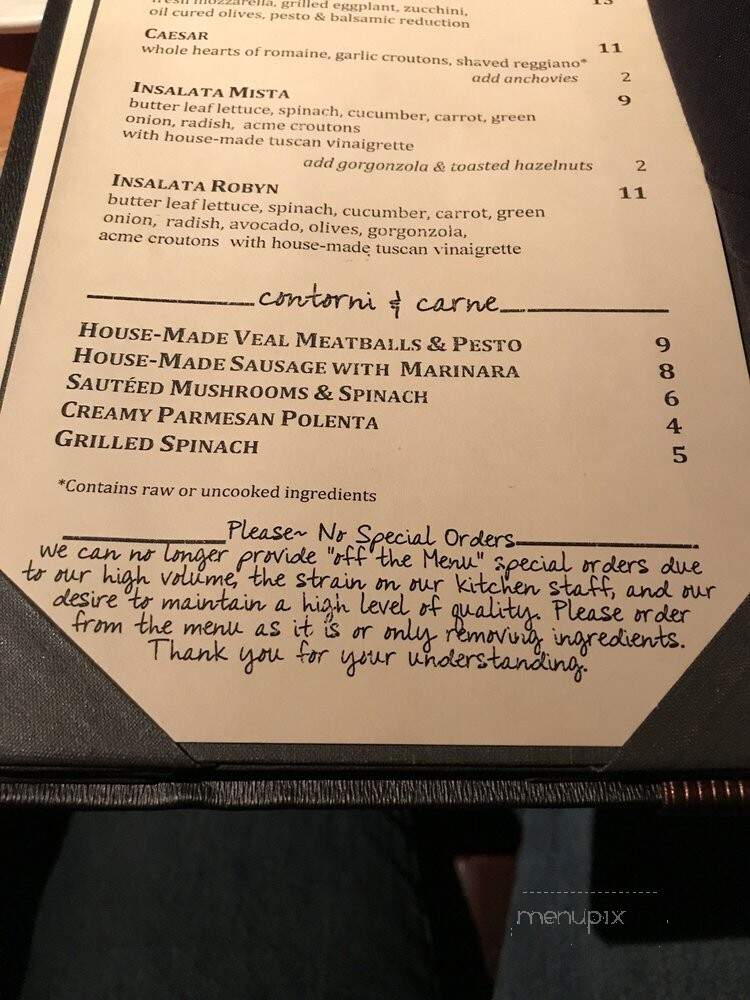 fresh mozzarella, grilled eggplant, zucchini, 13
oil cured olives, pesto & balsamic reduction
CAESAR 11
whole hearts of romaine, garlic croutons, shaved reggiano*
add anchovies 2
INSALATA MISTA 9
butter leaf lettuce, spinach, cucumber, carrot, green
onion, radish, acme croutons
with house-made tuscan vinaigrette
add gorgonzola & toasted hazelnuts 2
INSALATA ROBYN 11
butter leaf lettuce, spinach, cucumber, carrot, green
onion, radish, avocado, olives, gorgonzola,
acme croutons with house-made tuscan vinaigrette
contorni & carne
HOUSE-MADE VEAL MEATBALLS & PESTO 9
HOUSE-MADE SAUSAGE WITH MARINARA 8
SAUTÉED MUSHROOMS & SPINACH 6
CREAMY PARMESAN POLENTA 4
GRILLED SPINACH 5
*Contains raw or uncooked ingredients
Please~ No Special Orders
we can no longer provide "off the Menu" special orders due
to our high volume, the strain on our kitchen staff, and our
desire to maintain a high level of quality. Please order
from the menu as it is or only removing ingredients.
Thank you for your understanding.
menupix